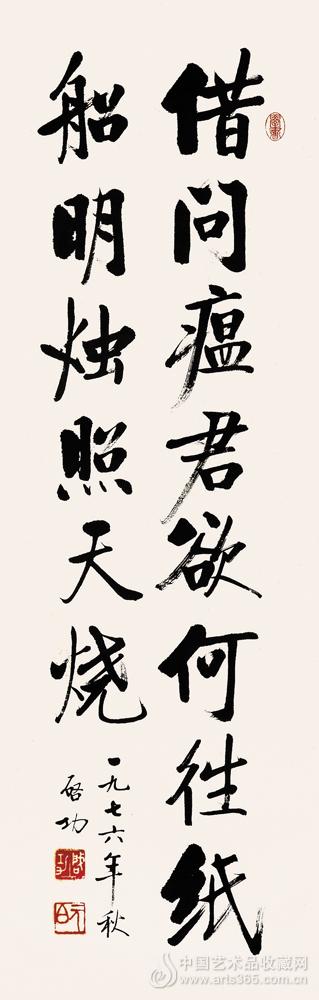 借问瘟君欲何往纸
船明烛照天烧
一九七六年秋
启功
启功
元白
中国艺术品收藏网
www.arts365.com.cn